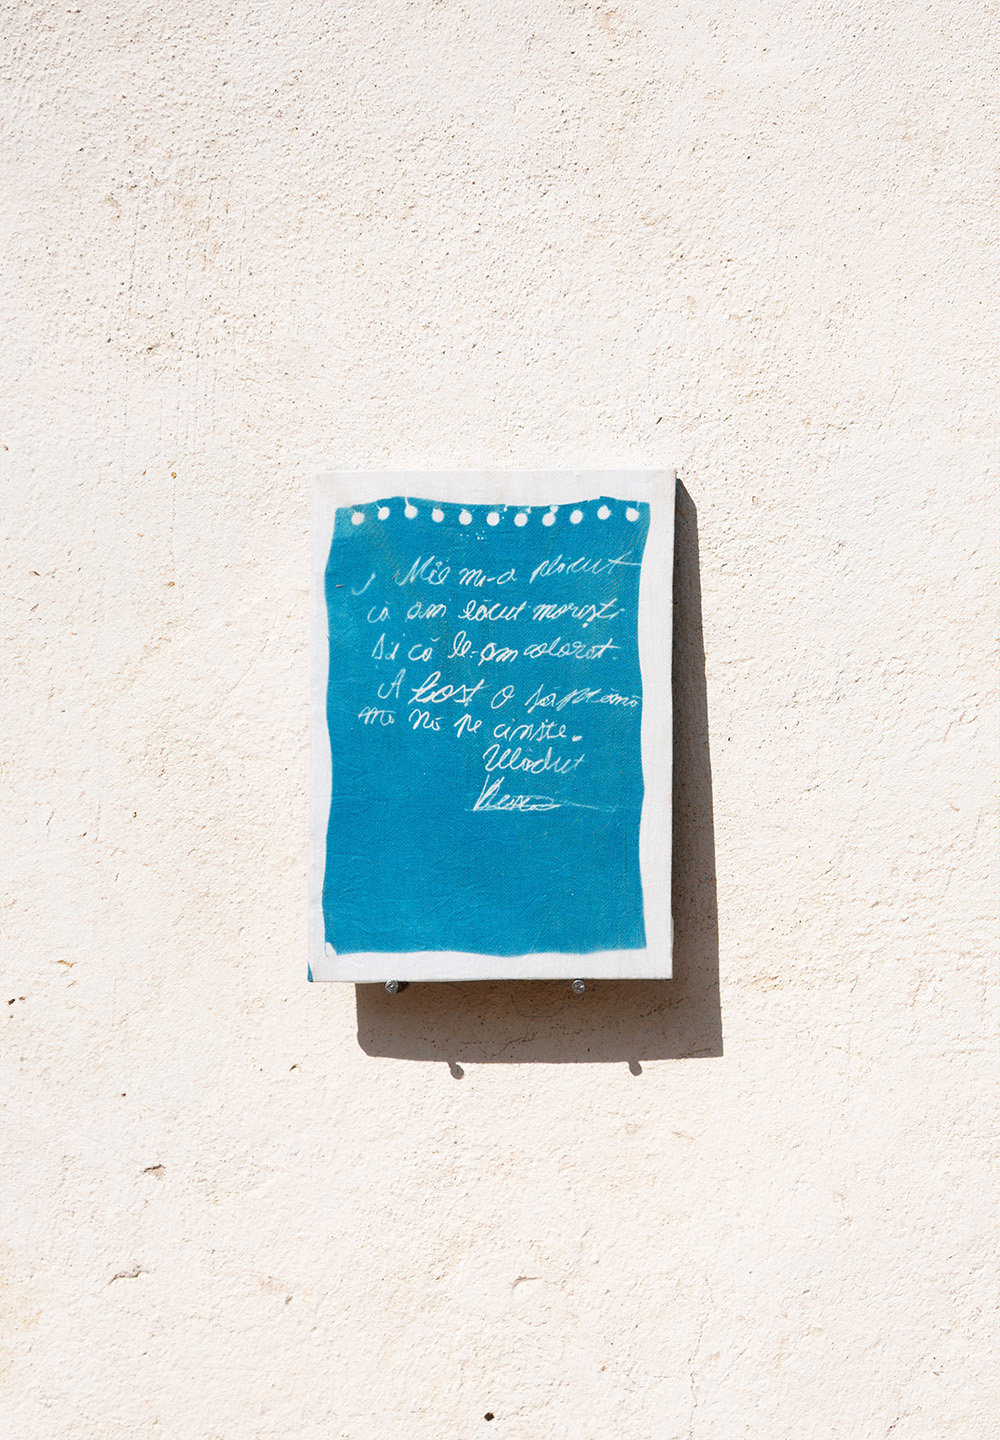 Mie mi-a plăcut
că am făcut moriști
Și că le-am colorat.
A fost o săptămă
nă pe cinste.
Vlăduț